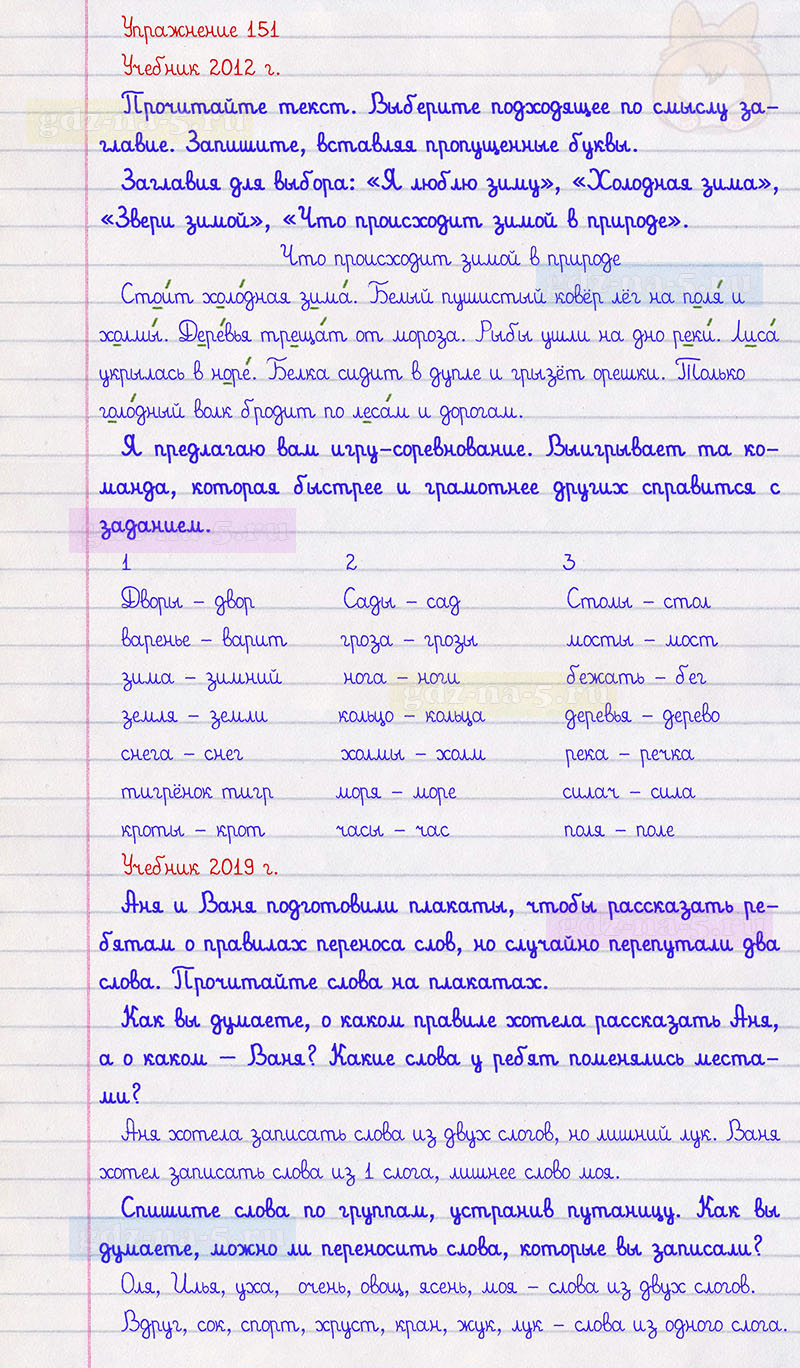 Упражнение 151
Учебник 2012 г.
Прочитайте текст. Выберите подходящее по смыслу за-
главие. Запишите, вставляя пропущенные буквы.
gdz-na-5.ru
Заглавия для выбора: «Я люблю зиму», «Холодная зима»,
«Звери зимой», «Что происходит зимой в природе».
Что происходит зимой в природе
gdz-na-5.ru
Стои́т холо́дная зима́. Белый пушистый ковёр лёг на поля́ и
холмы́. Дере́вья треща́т от мороза. Рыбы ушли на дно реки́. Лиса́
укрылась в норе́. Белка сидит в дупле и грызёт орешки. Только
голо́дный волк бродит по леса́м и дорогам.
Я предлагаю вам игру-соревнование. Выигрывает та ко-
манда, которая быстрее и грамотнее других справится с
заданием.
gdz-na-5.ru
1 2 3
Дворы – двор Сады – сад Столы – стол
варенье – варит гроза – грозы мосты – мост
зима – зимний нога – ноги бежать – бег
gdz-na-5.ru
земля – земли кольцо – кольца деревья – дерево
снега – снег холмы – холм река – речка
тигрёнок тигр моря – море силач – сила
кроты – крот часы – час поля – поле
Учебник 2019 г.
Аня и Ваня подготовили плакаты, чтобы рассказать ре-
gdz-na-5.ru
бятам о правилах переноса слов, но случайно перепутали два
слова. Прочитайте слова на плакатах.
Как вы думаете, о каком правиле хотела рассказать Аня,
а о каком – Ваня? Какие слова у ребят поменялись места-
ми?
Аня хотела записать слова из двух слогов, но лишний лук. Ваня
хотел записать слова из 1 слога, лишнее слово моя.
Спишите слова по группам, устранив путаницу. Как вы
думаете, можно ли переносить слова, которые вы записали?
gdz-na-5.ru
Оля, Илья, уха, очень, овощ, ясень, моя – слова из двух слогов.
Вдруг, сок, спорт, хруст, кран, жук, лук – слова из одного слога.